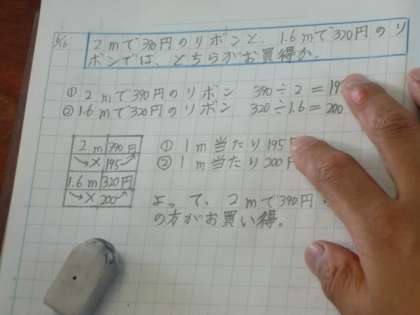 5/16
2mで390円のリボンと、1.6mで320円のリ
ボンでは、どちらがお買得か。
① 2mで390円のリボン 390÷2=195
② 1.6mで320円のリボン 320÷1.6=200
2m 390円
×195
1.6m 320円
×200
① 1m当たり195円
② 1m当たり200円
よって、2mで390円
の方がお買い得。